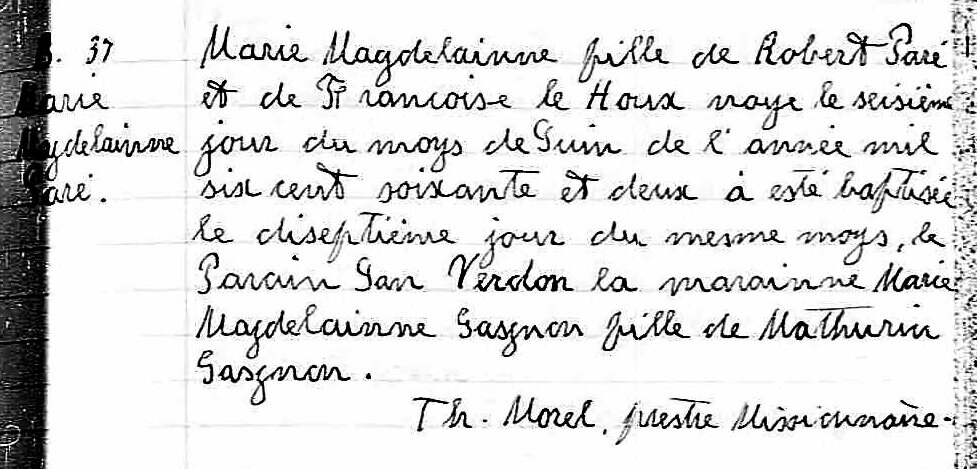 B. 37
Marie
Magdelainne
Paré.
Marie Magdelainne fille de Robert Paré
et de Francoise le Houx naye le seisième
jour du moys de Juin de l'année mil
six cent soixante et deux à esté baptisée
le diseptième jour du mesme moys, le
Parain Jan Verdon la marainne Marie
Magdelainne Gasgnon fille de Mathurin
Gasgnon.
Th. Morel, prestre Missionnaire.